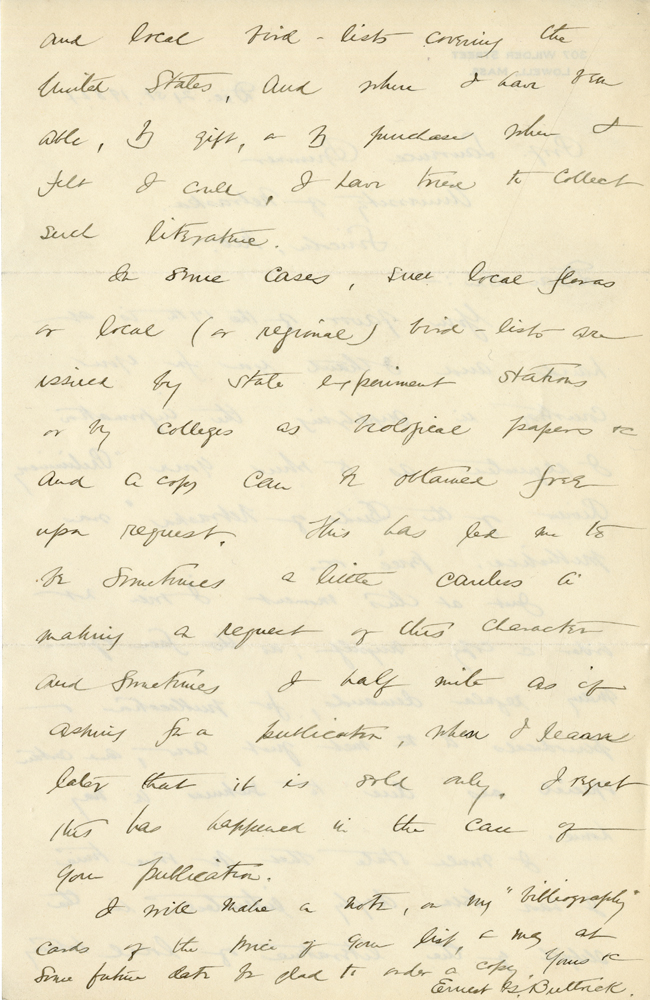 and local bird-lists covering the
United States, and where I have been
able, by gift, or by purchase when I
felt I could, I have tried to collect
such literature.
In some cases, such local floras
or local (or regional) bird-lists are
issued by State experiment stations
or by colleges as biological papers &c
and a copy can be obtained free
upon request. This has led me to
be sometimes a little careless in
making a request of this character
and sometimes I half write as if
asking for a publication, when I learn
later that it is sold only. I regret
this has happened in the case of
your publication.
I will make a note, on my "bibliography"
cards of the price of your list, & may at
some future date be glad to order a copy. Yours &c
Ernest G. Buttrick.